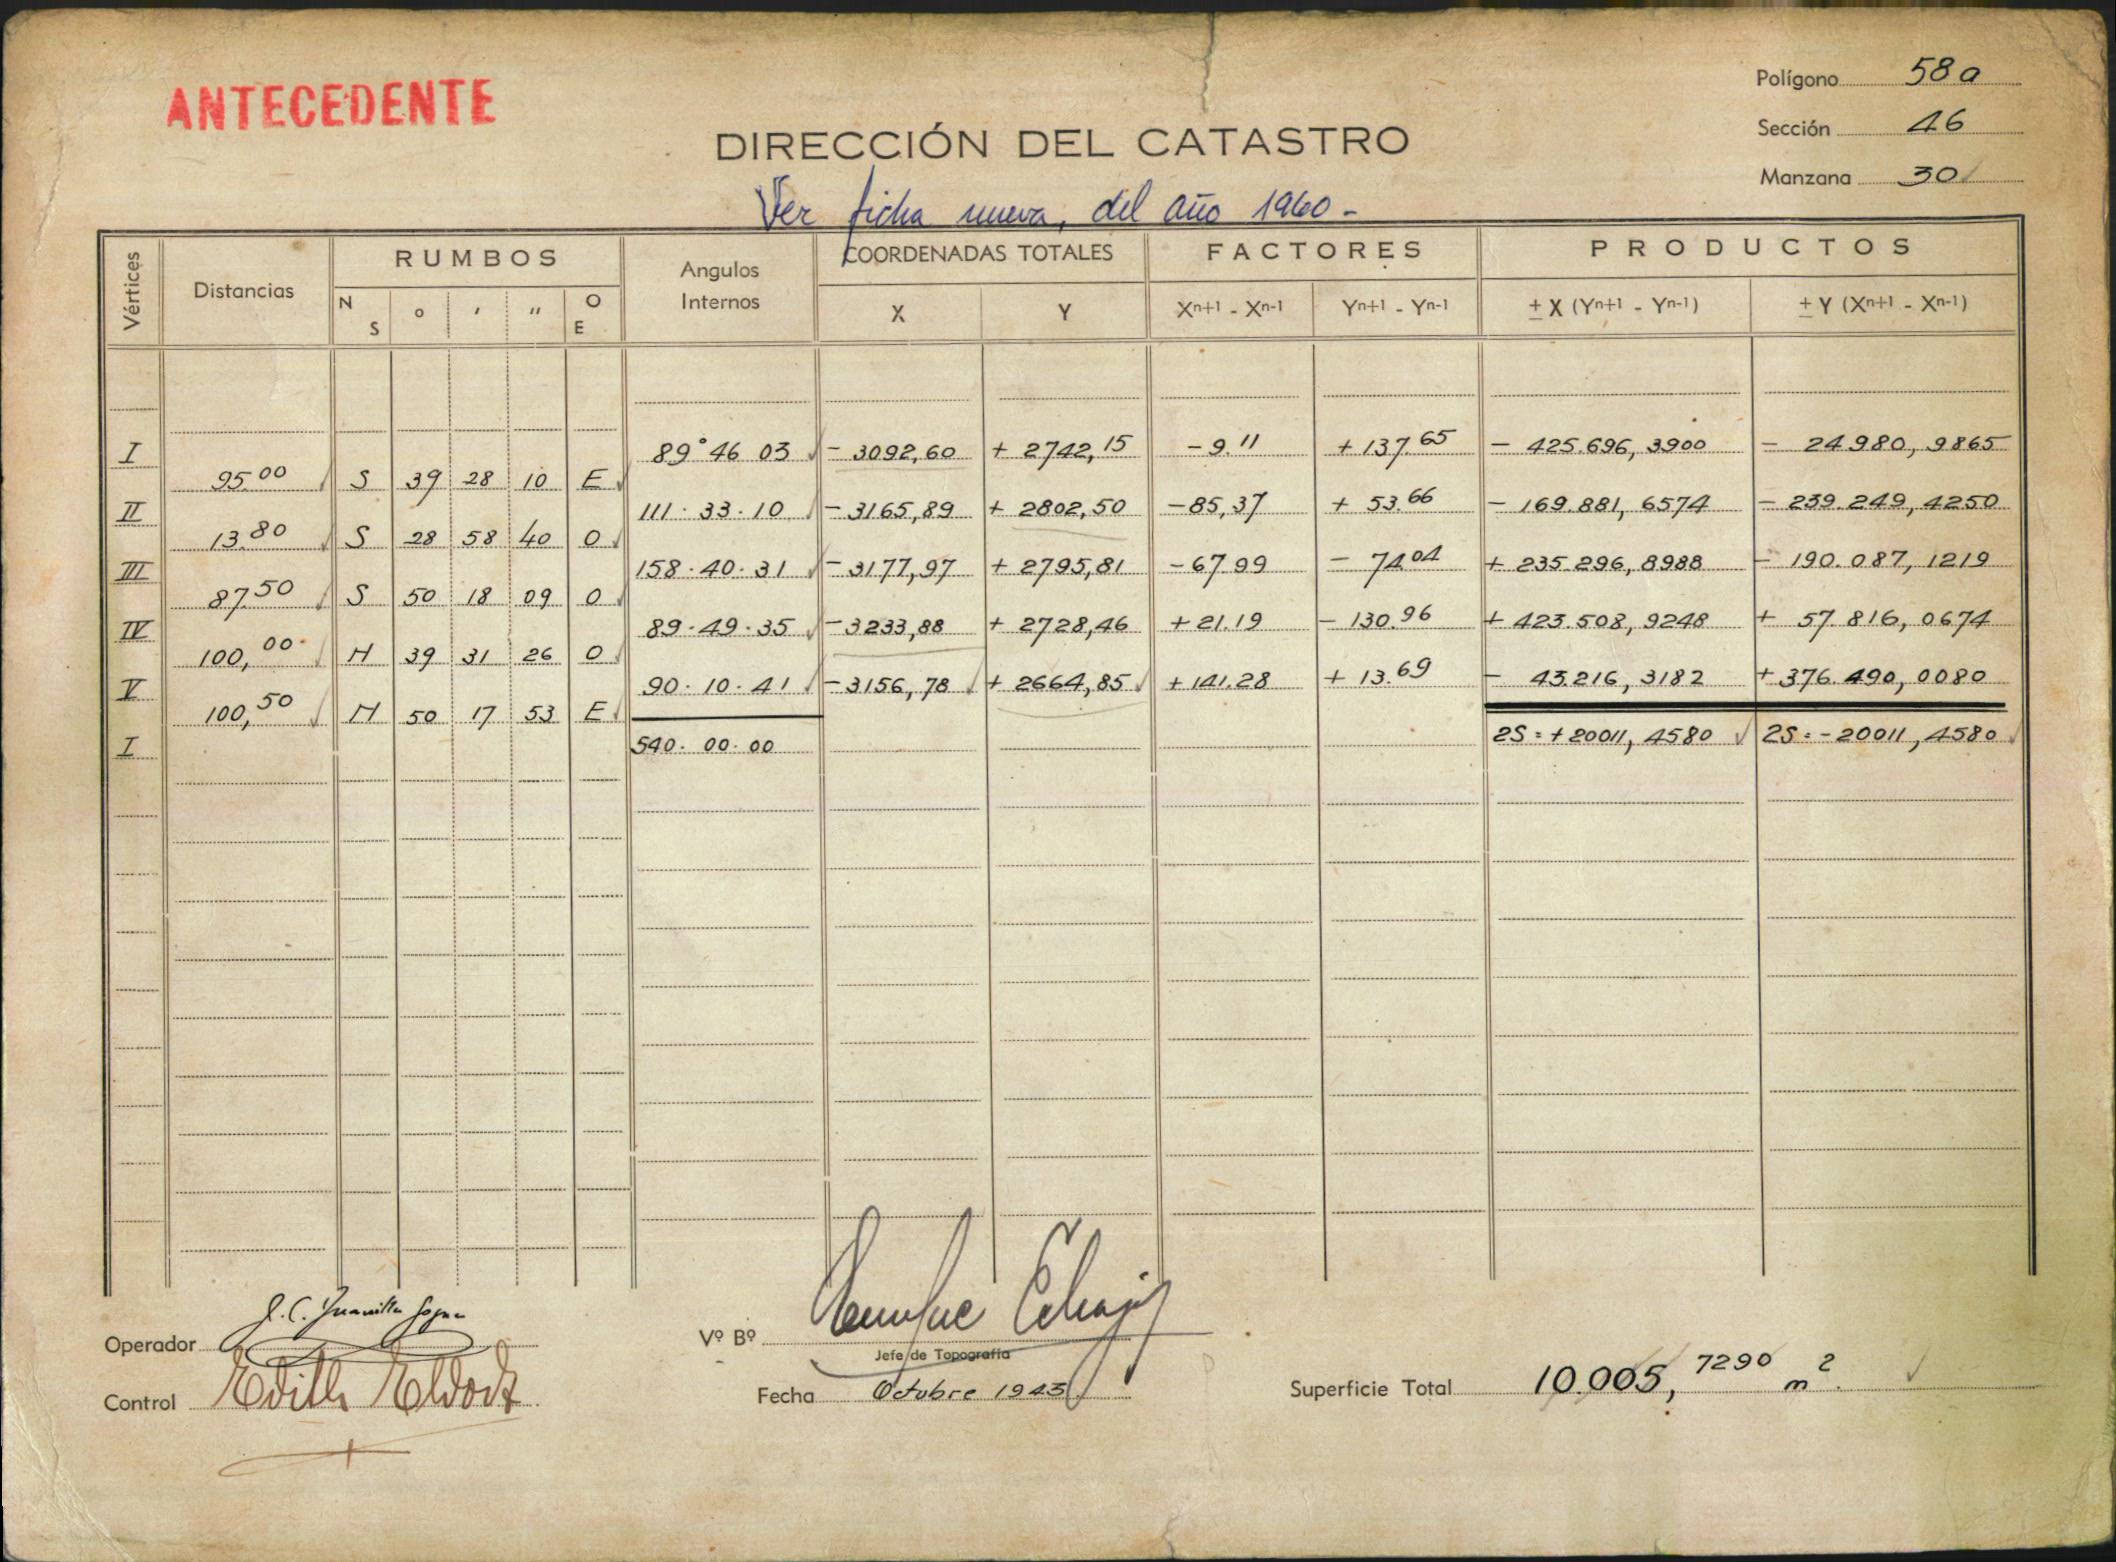 ANTECEDENTE
Polígono 58 a
Sección 46
Manzana 30
DIRECCIÓN DEL CATASTRO
Ver ficha nueva, del año 1960 -
Vértices Distancias RUMBOS Angulos Internos COORDENADAS TOTALES FACTORES PRODUCTOS
N S ° ' " O E X Y Xn+1 - Xn-1 Yn+1 - Yn-1 ± X (Yn+1 - Yn-1) ± Y (Xn+1 - Xn-1)
I 89° 46 03 - 3092,60 + 2742,15 - 9.11 + 137.65 - 425.696,3900 - 24.980,9865
95.00 S 39 28 10 E
II 111 · 33 · 10 - 3165,89 + 2802,50 - 85,37 + 53.66 - 169.881,6574 - 239.249,4250
13.80 S 28 58 40 O
III 158 · 40 · 31 - 3177,97 + 2795,81 - 67.99 - 74.04 + 235.296,8988 - 190.087,1219
87.50 S 50 18 09 O
IV 89 · 49 · 35 - 3233,88 + 2728,46 + 21.19 - 130.96 + 423.508,9248 + 57.816,0674
100,00 N 39 31 26 O
V 90 · 10 · 41 - 3156,78 + 2664,85 + 141.28 + 13.69 - 43.216,3182 + 376.490,0080
100,50 N 50 17 53 E
I 540 · 00 · 00 2S = + 20011,4580 2S = - 20011,4580
Operador
Vº Bº
Jefe de Topografía
Control
Fecha Octubre 1943
Superficie Total 10.005,7290 m2.